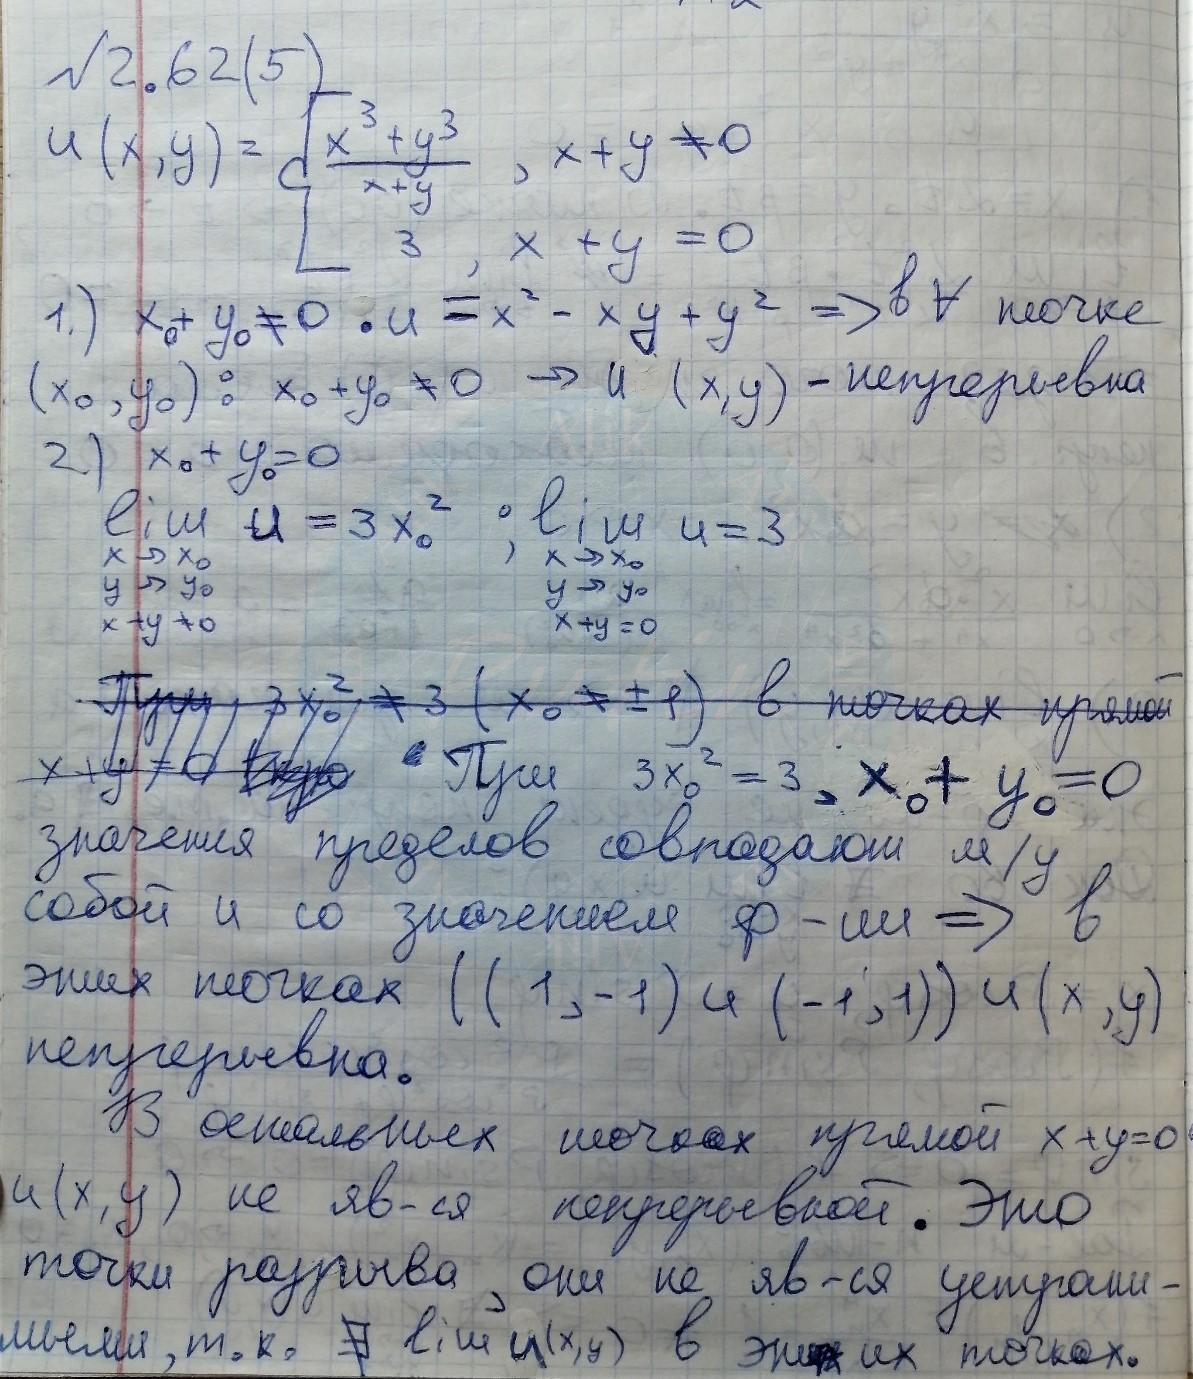 √2.62(5)
u(x,y) = { x³+y³ / x+y , x+y ≠ 0
3 , x + y = 0
1.) x₀+y₀≠0 . u = x² - xy + y² => в ∀ точке
(x₀,y₀): x₀+y₀≠0 → u (x,y) - непрерывна
2.) x₀+y₀=0
lim u = 3x₀² ; lim u = 3
x→x₀ x→x₀
y→y₀ y→y₀
x+y≠0 x+y=0
При 3x₀² ≠ 3 (x₀ ≠ ±1) в точках прямой
x+y=0 При 3x₀² = 3, x₀+y₀=0
значения пределов совпадают м/у
собой и со значением ф-ии => в
этих точках ((1,-1) и (-1,1)) u(x,y)
непрерывна.
В остальных точках прямой x+y=0
u(x,y) не яв-ся непрерывной. Это
точки разрыва, они не яв-ся устрани-
мыми, т.к. ∄ lim u(x,y) в этих точках.